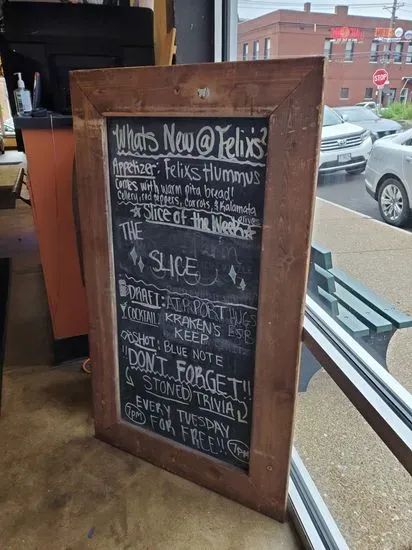 Whats New @ Felixs?
Appetizer: Felixs Hummus
Comes with warm pita bread!
Cellery, red peppers, carrots, & Kalamata
olives
Slice of the Week
THE
SLICE
DRAFT: AIRPORT HUGS
ESB
COCKTAIL: KRAKEN'S
KEEP
SHOT: BLUE NOTE
!!DON'T FORGET!!
STONED TRIVIA
EVERY TUESDAY
7PM FOR FREE!! 7PM
STOP